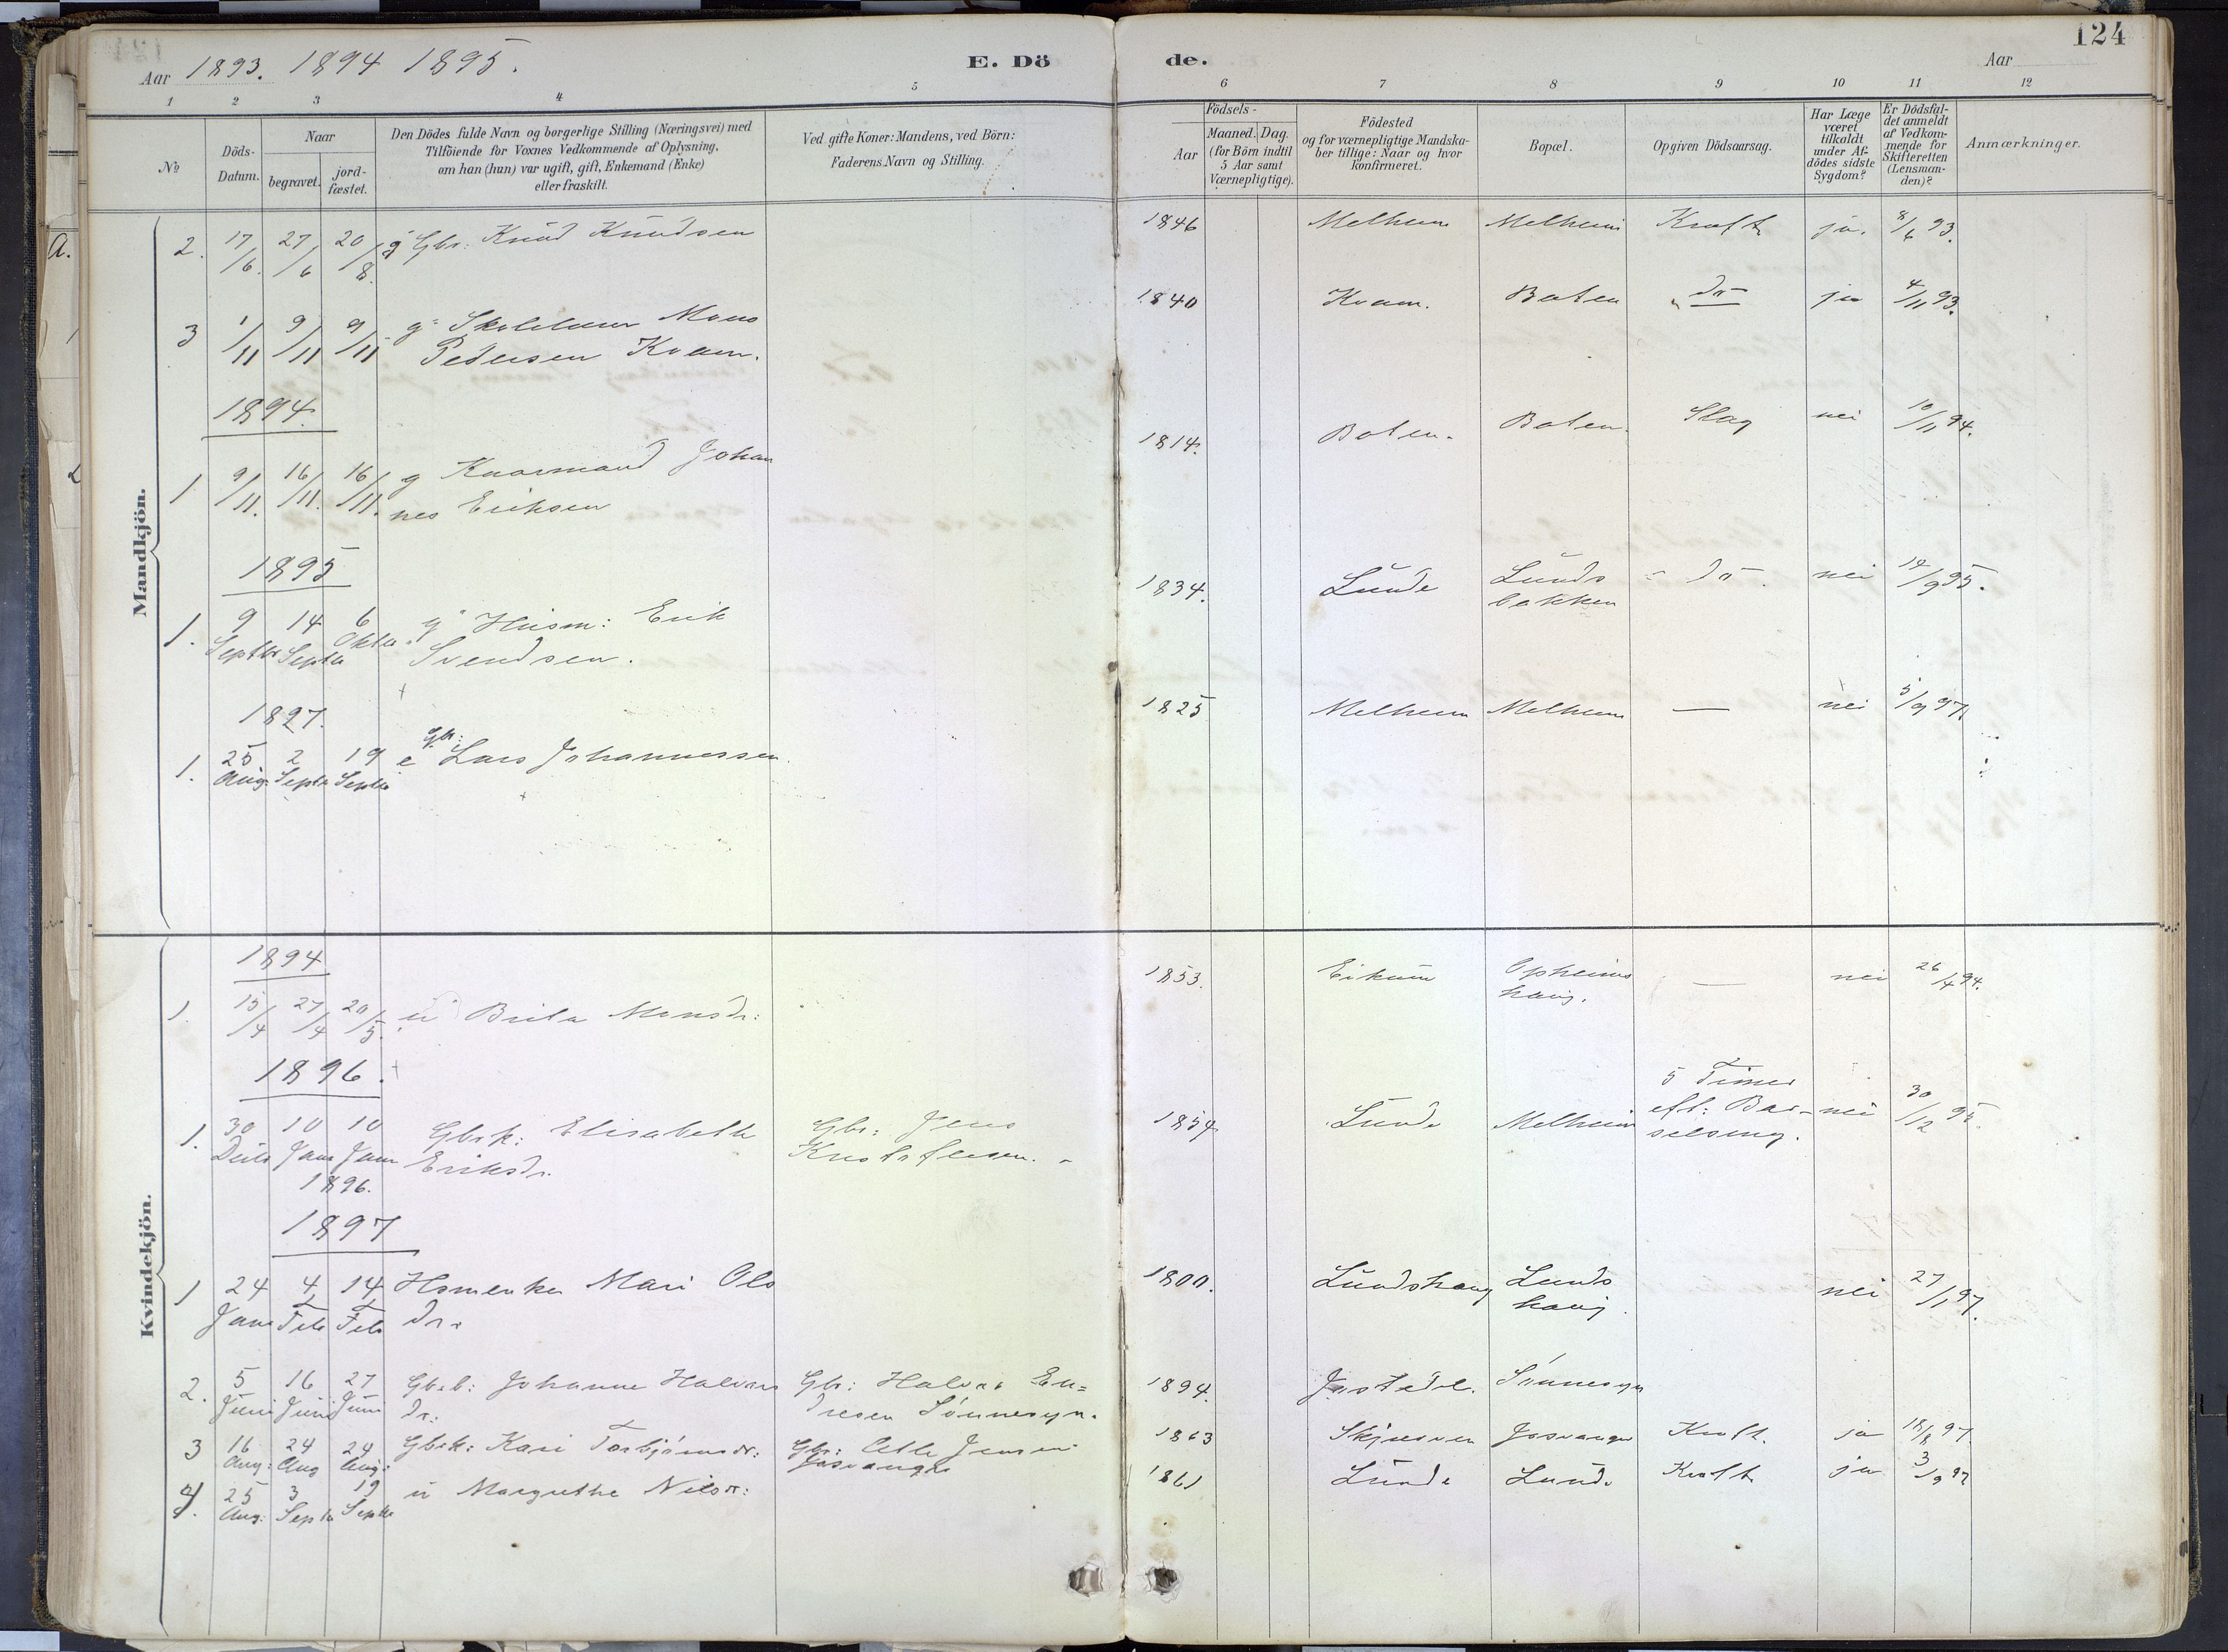 124
Aar 1893. 1894 1895.
E. Dö de.
Aar
1 2 3 4 5 6 7 8 9 10 11 12
No
Döds-Datum.
Naar
begravet.
jord-fæstet.
Den Dödes fulde Navn og borgerlige Stilling (Næringsvei) med
Tilföiende for Voxnes Vedkommende af Oplysning,
om han (hun) var ugift, gift, Enkemand (Enke)
eller fraskilt.
Ved gifte Koner: Mandens, ved Börn:
Faderens Navn og Stilling.
Födsels-
Aar
Maaned. Dag.
(for Börn indtil
5 Aar samt
Værnepligtige).
Födested
og for værnepligtige Mandska-
ber tillige: Naar og hvor
konfirmeret.
Bopæl.
Opgiven Dödsaarsag.
Har Læge
været
tilkaldt
under Af-
dödes sidste
Sygdom?
Er Dödsfal-
det anmeldt
af Vedkom-
mende for
Skifteretten
(Lensman-
den)?
Anmærkninger.
Mandkjön.
2. 17/6. 27/6 20/8. g Gbr: Knud Knudsen 1846 Melheim Melheim Kræft ja. 8/6 93.
3 1/11 9/11 9/11 g Skolelærer Mons
Pedersen Kvam. 1840 Kvam. Baten do ja 4/11 93.
1894.
1 9/11. 16/11. 16/11. g Kaarmand Johan
nes Eriksen 1814. Baten. Baten. Slag nei 10/11 94.
1895
1. 9 Septbr 14 Septbr 6 Oktbr. g Husm: Erik
Svendsen. 1834. Lunde Lunds
bakken do. nei 14/9 95.
1897.
1. 25 Aug: 2 Septbr 19 Septbr e Gbr: Lars Johannessen. 1825 Melheim Melheim — nei 5/9 97.
Kvindekjön.
1894
1. 15/4 27/4 20/5. u Brita Monsdr: 1853. Eikum Opheims
haug. — nei 26/4 94.
1896.
1. 30 Decbr 10 Janr 10 Janr
1896. Gbrk: Elisabeth
Eriksdr. Gbr: Jens
Kristoffersen. 1854. Lunde Melheim 5 Timer
eft: Bar-
selseng. nei 30/12 95.
1897
1 24 Janr 4 Febr 14 Febr Hsmenke Mari Ols
dr. 1800. Lundshaug Lunds
haug. nei 27/1 97.
2. 5 Juni 16 Juni 27 Juni Gbrb: Johanne Halvors
dr: Gbr: Halvor En=
dresen Sönnesyn. 1894. Jostedal. Sönnesyn
3 16 Aug: 24 Aug 24 Aug: Gbrk: Kari Torbjörnsdr: Gbr: Atle Jensen
Josvanger 1863 Skjersven Josvanger Kræft. ja 18/8 97.
4. 25 Aug: 3 Septbr 19 Septbr u Margrethe Nilsdr: 1861 Lunde Lunde Kræft ja 3/9 97